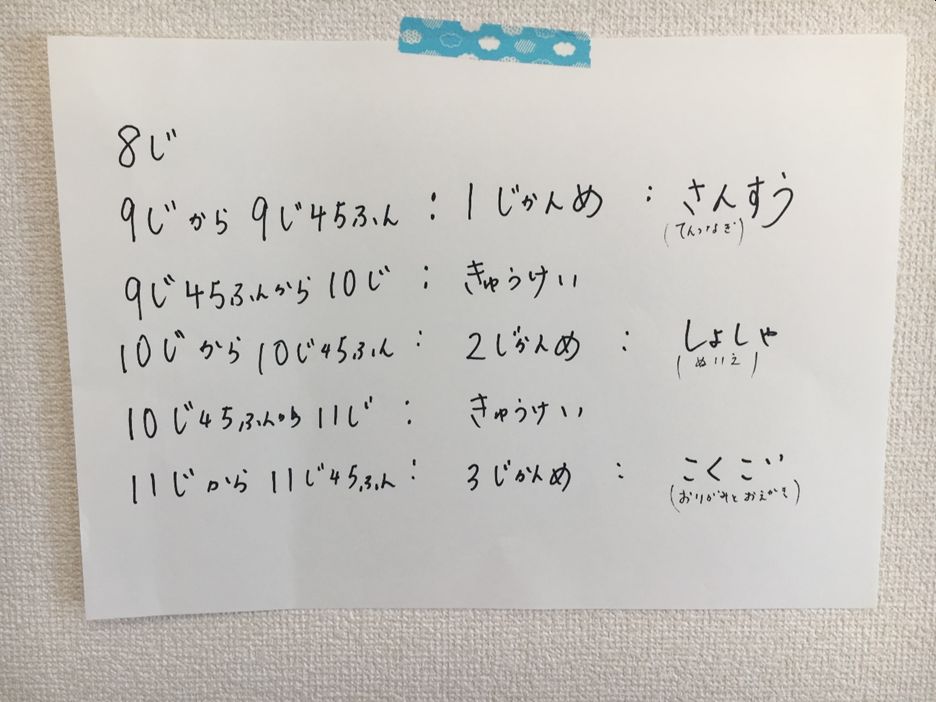 8じ
9じから 9じ45ふん : 1じかんめ : さんすう
(てんつなぎ)
9じ45ふんから10じ : きゅうけい
10じから10じ45ふん : 2じかんめ : しょしゃ
(ぬりえ)
10じ45ふんから11じ : きゅうけい
11じから 11じ45ふん : 3じかんめ : こくご
(おりがみとおえかき)